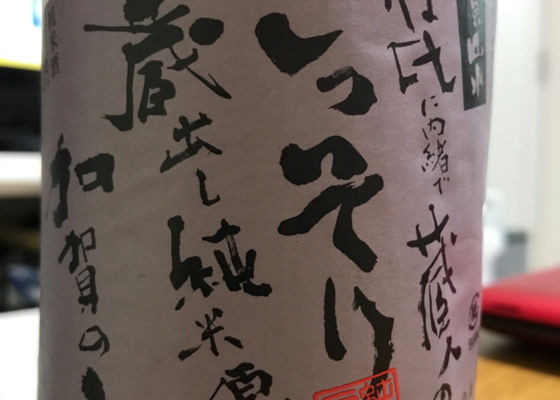 杜氏に内緒で蔵人の
いっそり
蔵出し純米酒
加賀の
純米酒